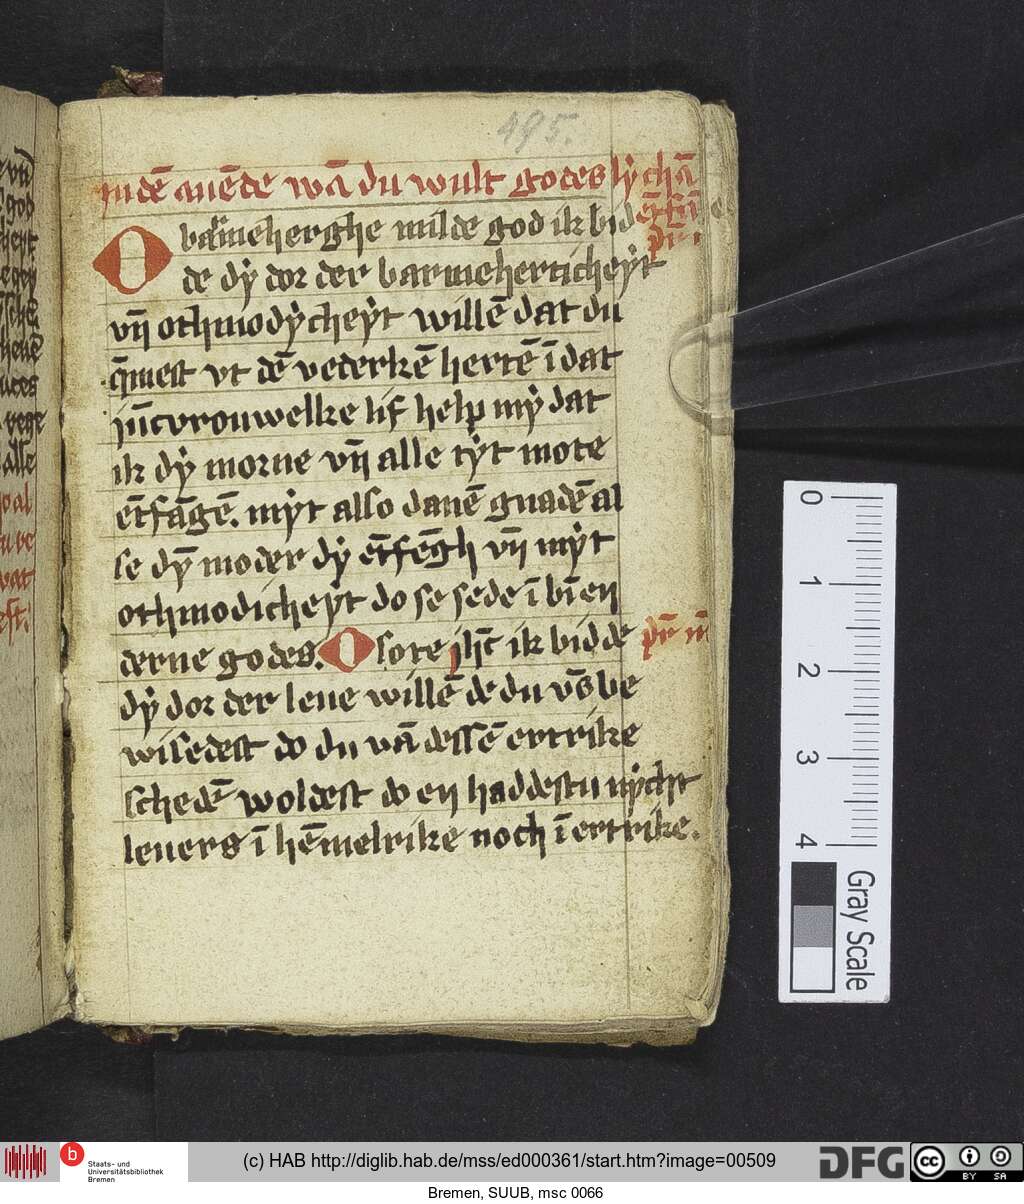 495.
In dē auēde wā du wult godes lychā
ētfā
pr nr
O barmeherghe milde god ik bid
de dÿ dor der barmeherticheÿt
vn̄ othmodÿcheÿt willē dat du
q̄mest vt dē vederkē hertē ī dat
jūcvrouwelke lif help mÿ dat
ik dÿ morne vn̄ alle tÿt mote
ētfāgē. mÿt also danē gnadē al
se dÿ moder dÿ ētfēgh vn̄ mÿt
othmodicheÿt do se sede ī bī en
derne godes. O sote jhc̄ ik bidde pr̄ nr̄
dÿ dor der leue willē de du vs̄ be
wisedest do du vā dessē ertrike
schedē woldest do en haddestu nÿcht
leuers ī hēmelrike noch ī ertrike.
0
1
2
3
4
Gray Scale
b
Staats- und
Universitätsbibliothek
Bremen
(c) HAB http://diglib.hab.de/mss/ed000361/start.htm?image=00509
DFG
cc
BY SA
Bremen, SUUB, msc 0066